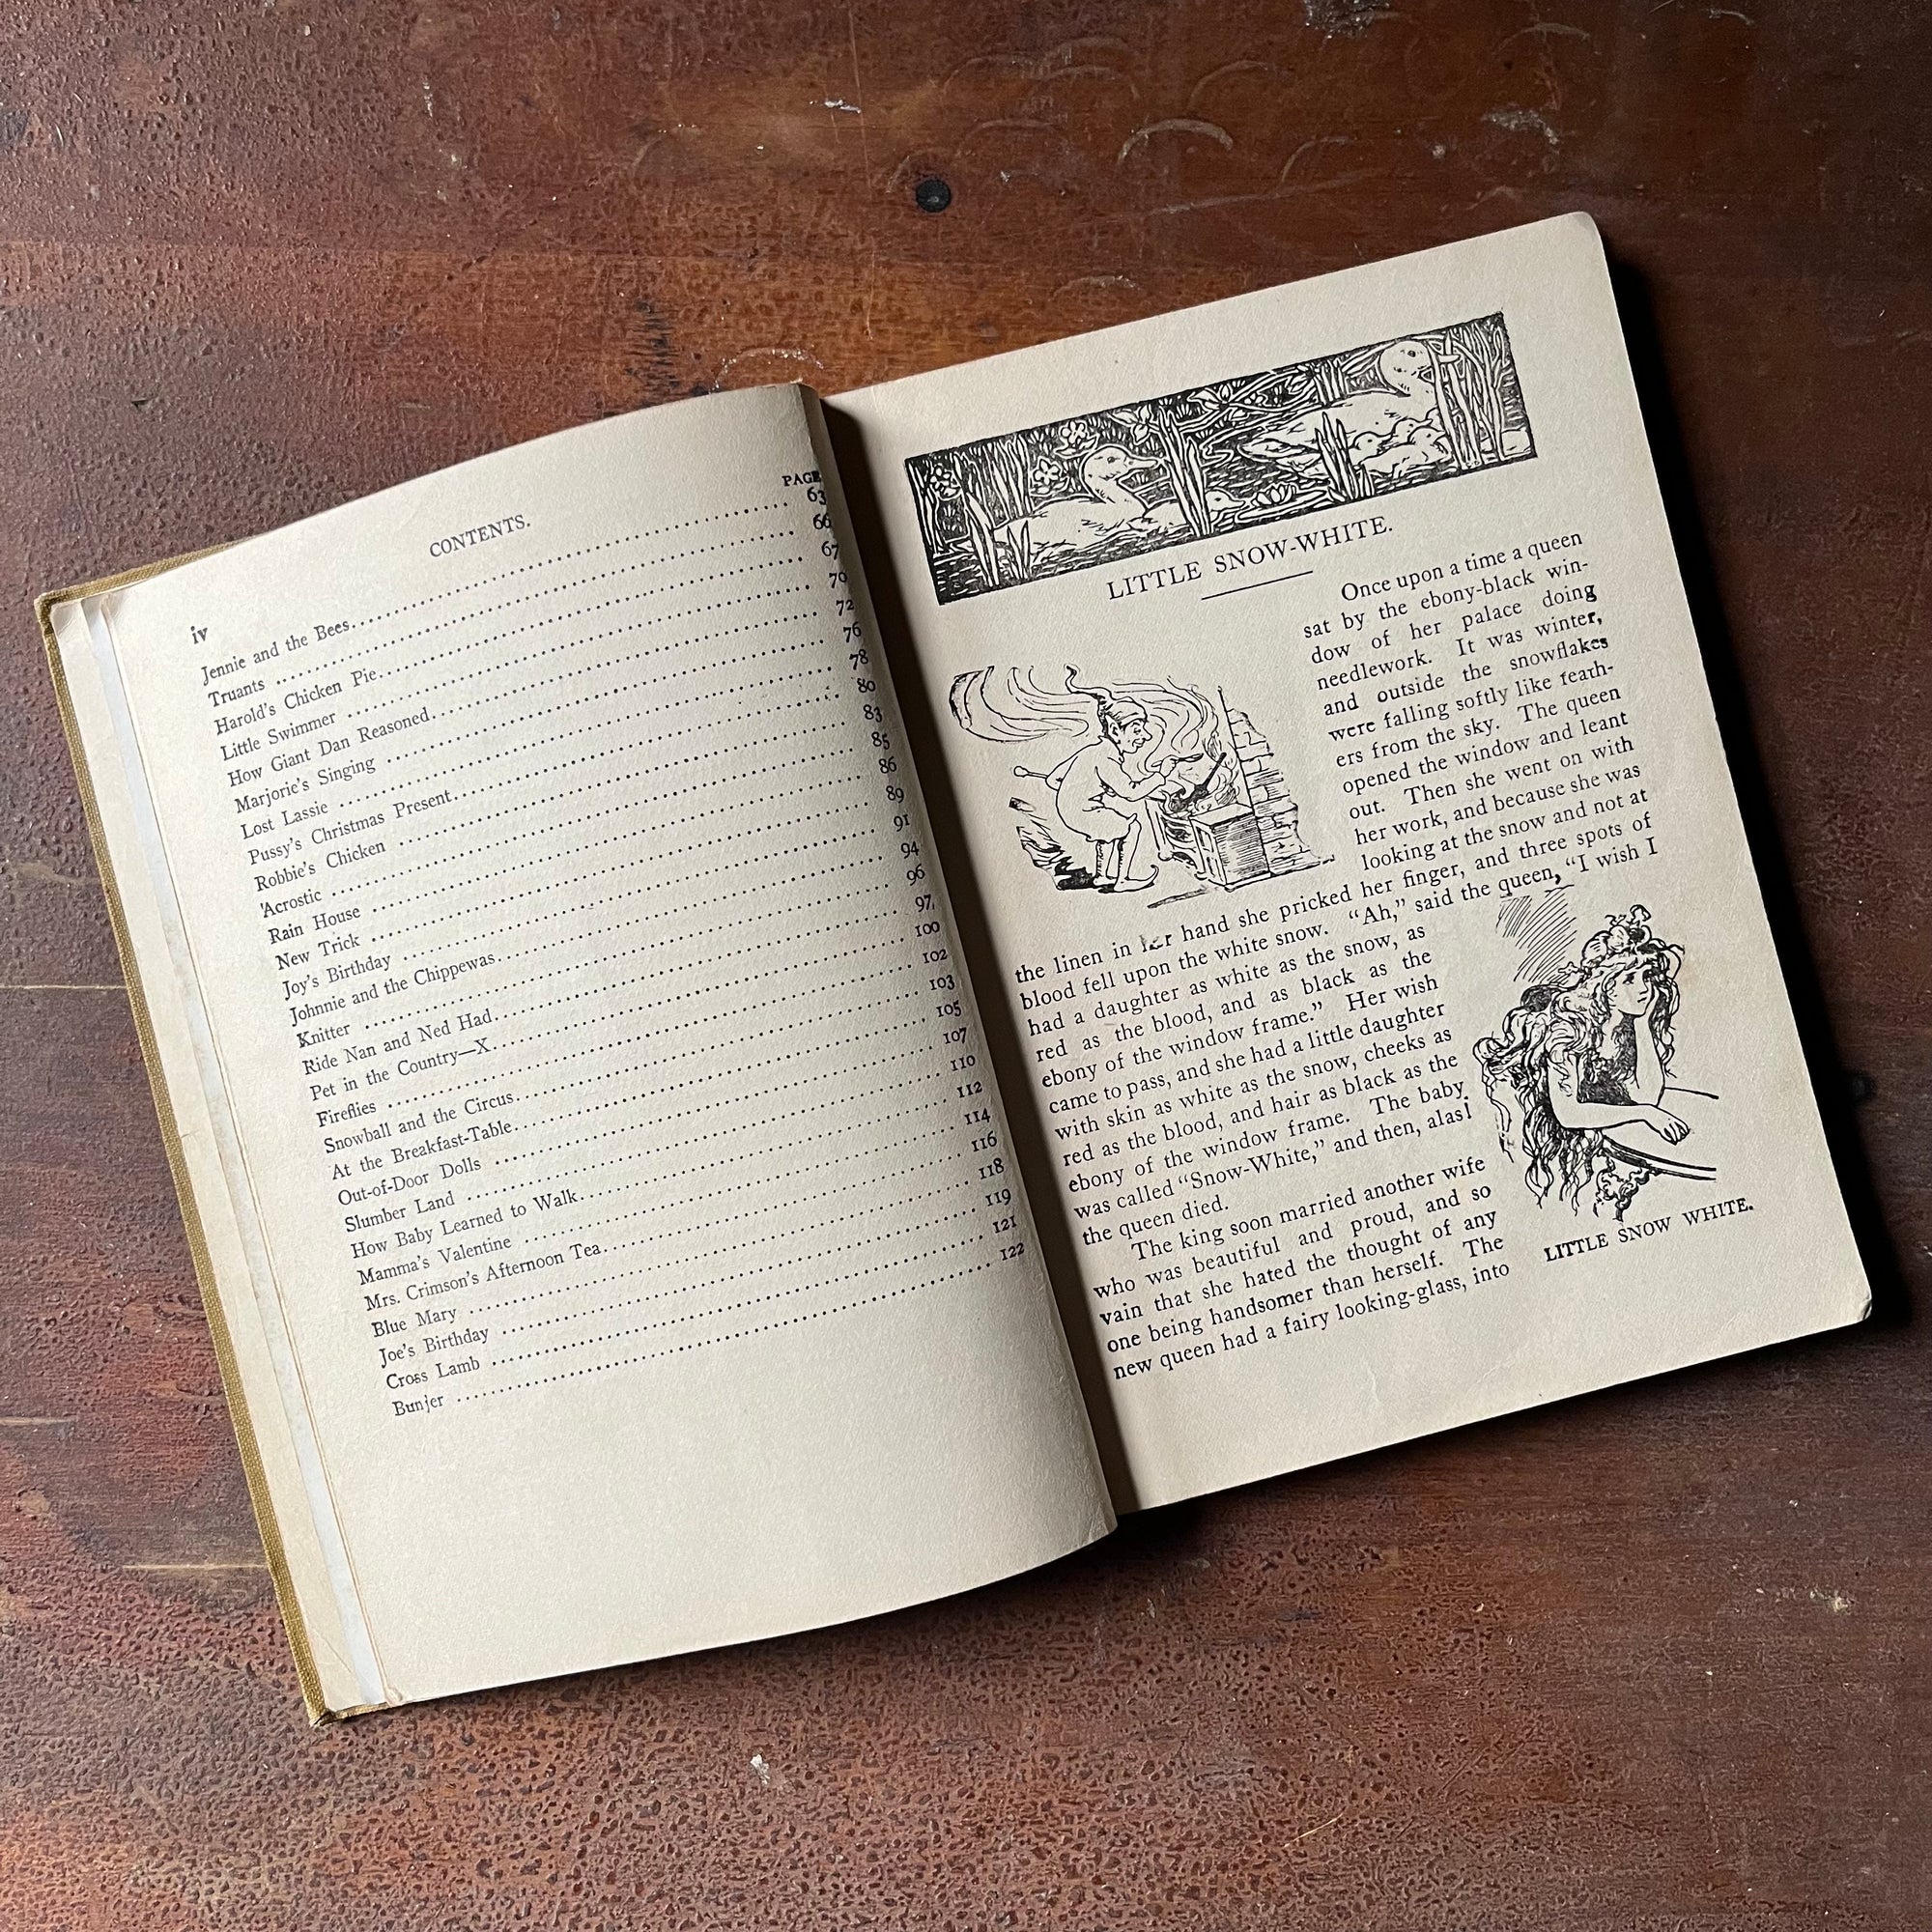 iv CONTENTS.
PAGE
Jennie and the Bees 63
Truants 66
Harold's Chicken Pie 67
Little Swimmer 70
How Giant Dan Reasoned 72
Marjorie's Singing 76
Lost Lassie 78
Pussy's Christmas Present 80
Robbie's Chicken 83
'Acrostic 85
Rain House 86
New Trick 89
Joy's Birthday 91
Johnnie and the Chippewas 94
Knitter 96
Ride Nan and Ned Had 97
Pet in the Country—X 100
Fireflies 102
Snowball and the Circus 103
At the Breakfast-Table 105
Out-of-Door Dolls 107
Slumber Land 110
How Baby Learned to Walk 112
Mamma's Valentine 114
Mrs. Crimson's Afternoon Tea 116
Blue Mary 118
Joe's Birthday 119
Cross Lamb 121
Bunjer 122
LITTLE SNOW-WHITE.
Once upon a time a queen
sat by the ebony-black win-
dow of her palace doing
needlework. It was winter,
and outside the snowflakes
were falling softly like feath-
ers from the sky. The queen
opened the window and leant
out. Then she went on with
her work, and because she was
looking at the snow and not at
the linen in her hand she pricked her finger, and three spots of
blood fell upon the white snow. "Ah," said the queen, "I wish I
had a daughter as white as the snow, as
red as the blood, and as black as the
ebony of the window frame." Her wish
came to pass, and she had a little daughter
with skin as white as the snow, cheeks as
red as the blood, and hair as black as the
ebony of the window frame. The baby
was called "Snow-White," and then, alas!
the queen died.
The king soon married another wife
who was beautiful and proud, and so
vain that she hated the thought of any
one being handsomer than herself. The
new queen had a fairy looking-glass, into
LITTLE SNOW WHITE.